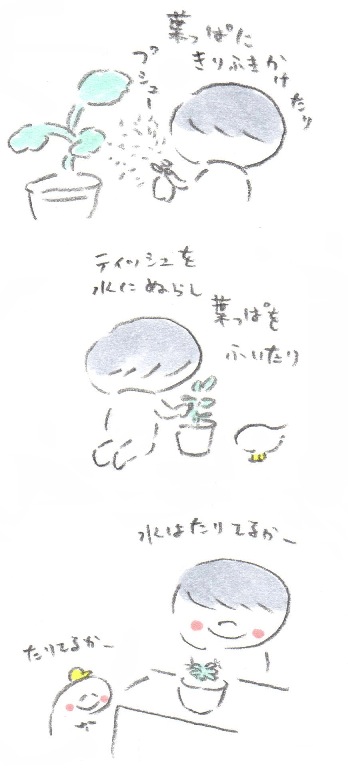 葉っぱに
きりふきかけたり
プシュー
ティッシュを
水にぬらし
葉っぱを
ふいたり
水はたりてるかー
たりてるかー